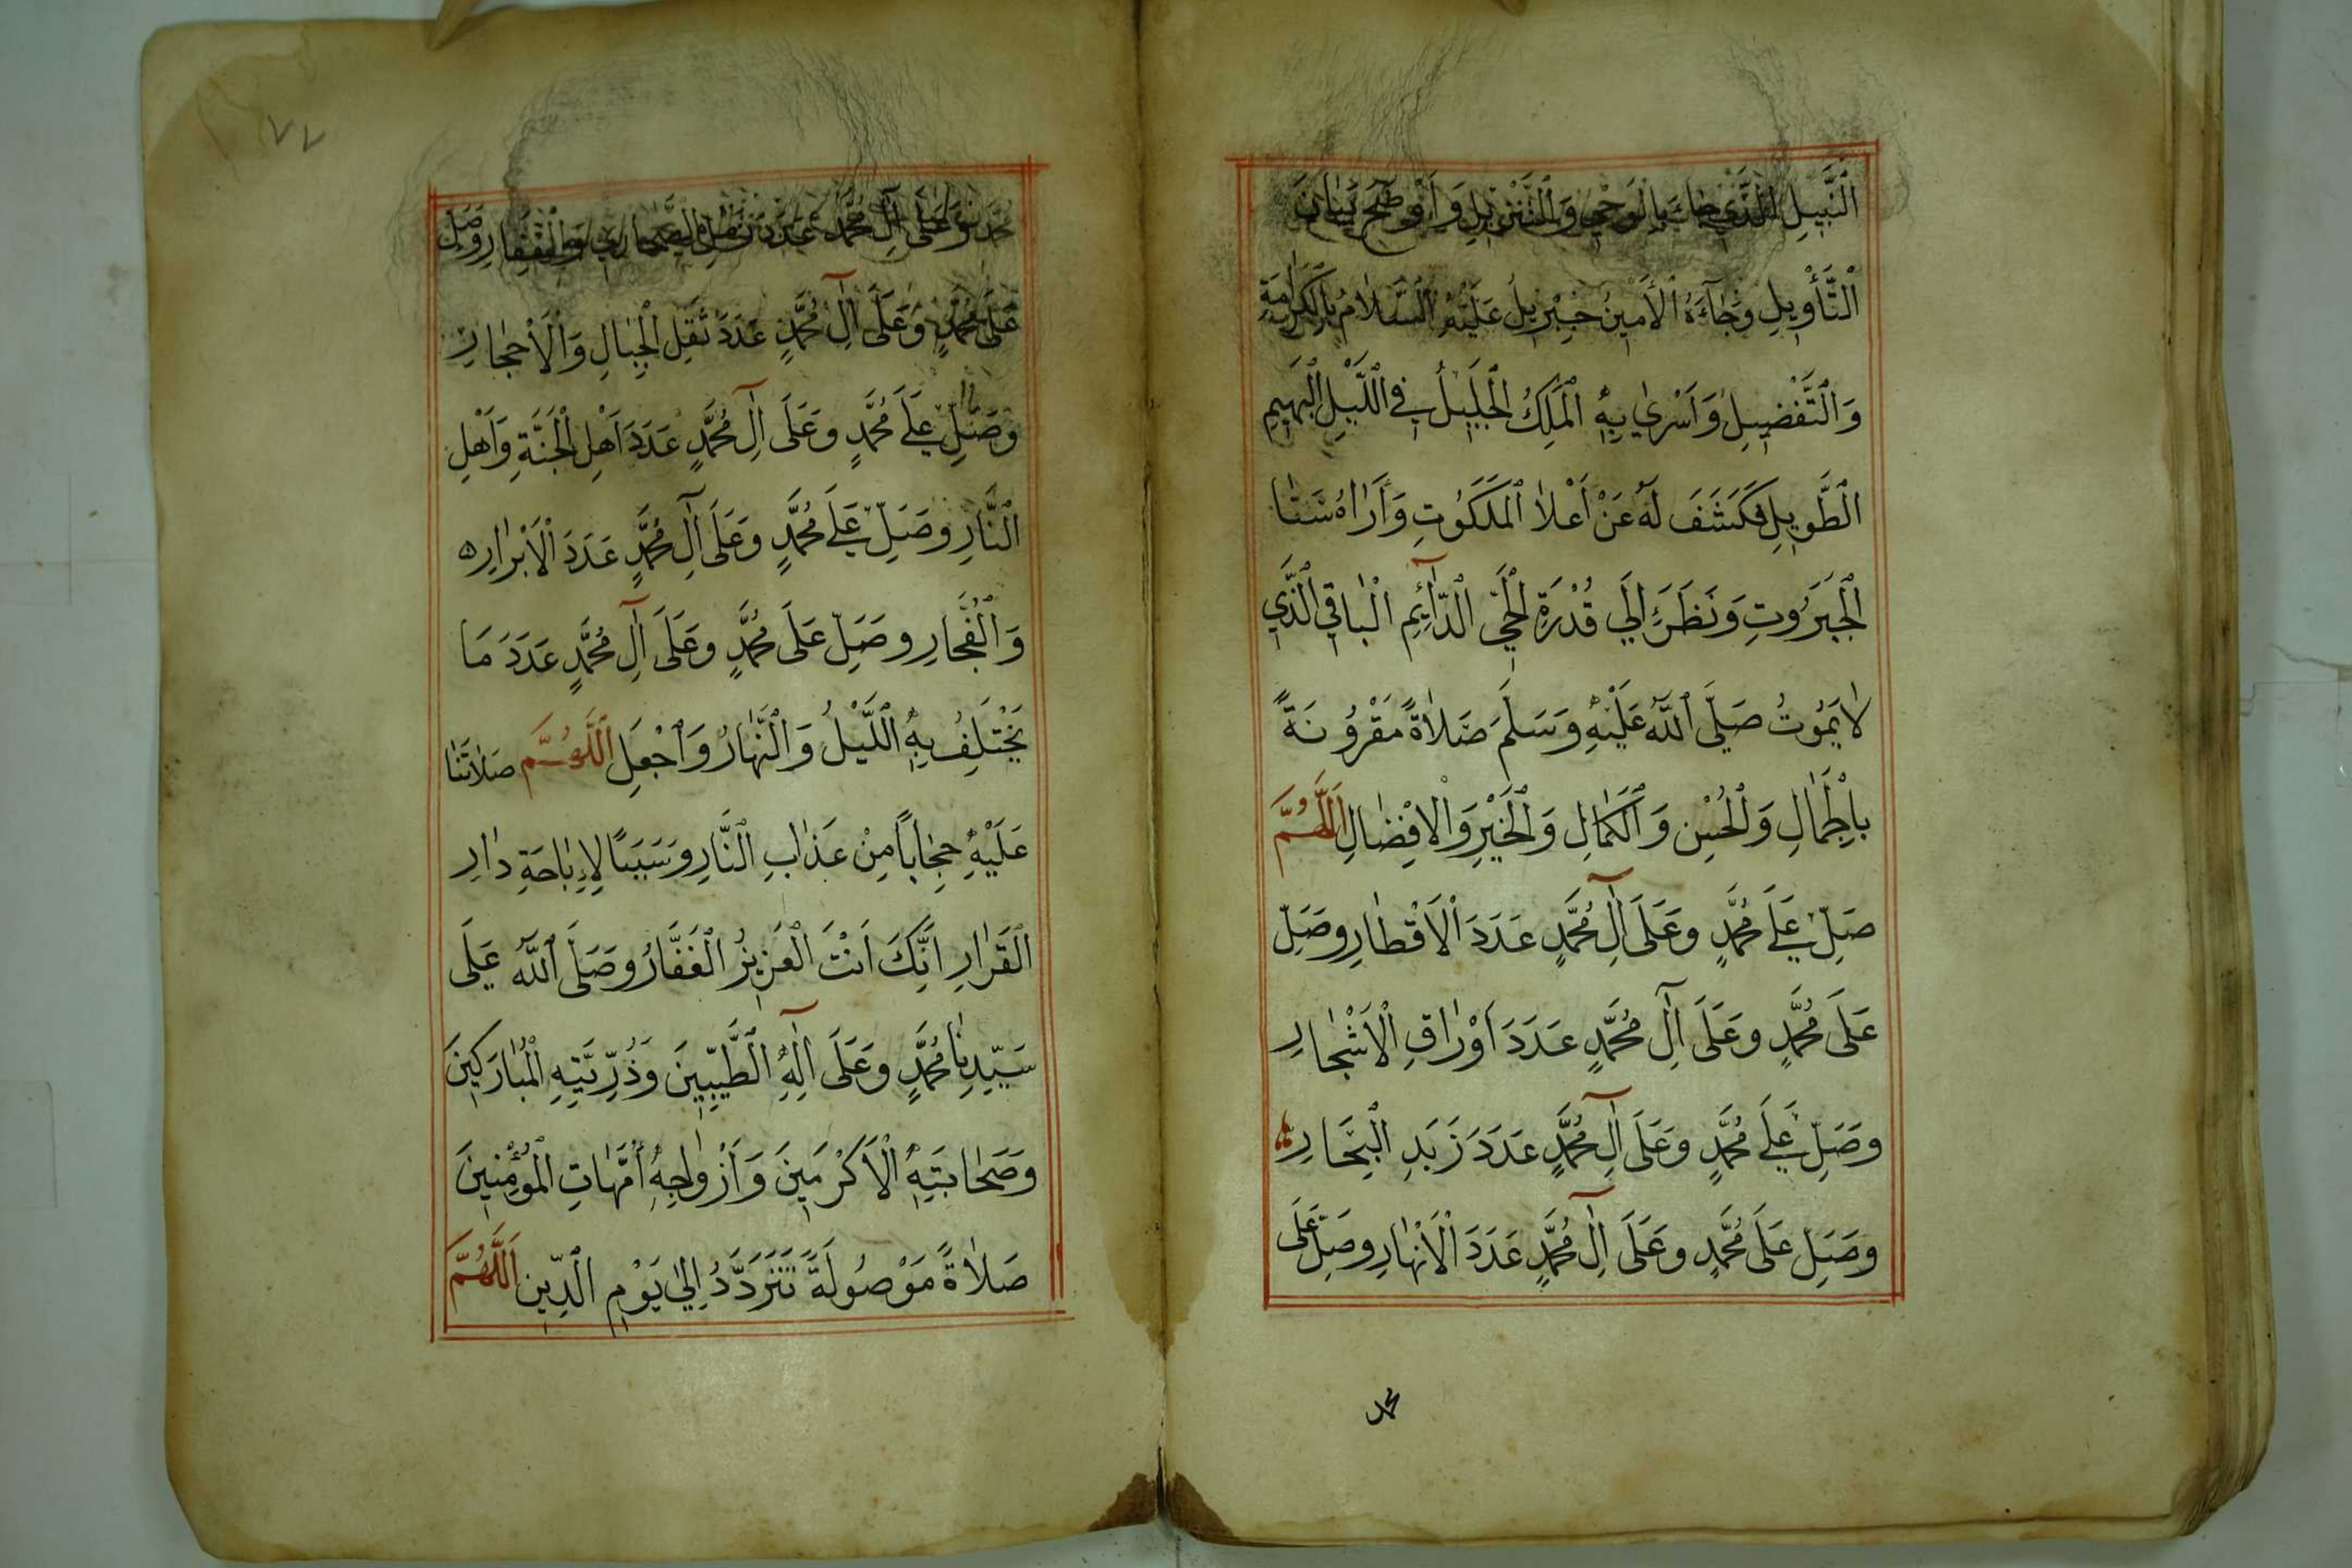 ٱلنَّبِيلِ ٱلَّذِي جَآءَ بِالْوَحْيِ وَٱلتَّنْزِيلِ وَأَوْضَحَ بَيَانَ
ٱلتَّأْوِيلِ وَجَآءَهُ ٱلْأَمِينُ جِبْرِيلُ عَلَيْهِ ٱلسَّلَامُ بِالْكَرَامَةِ
وَٱلتَّفْضِيلِ وَاَسْرٰي بِهِ ٱلْمَلِكُ ٱلْجَلِيلُ فِي ٱللَّيْلِ ٱلْبَهِيمِ
ٱلطَّوِيلِ فَكَشَفَ لَهُ عَنْ اَعْلَا ٱلْمَلَكُوتِ وَأَرَاهُ سَنَا
ٱلْجَبَرُوتِ وَنَظَرَ إِلَي قُدْرَةِ ٱلْحَيِّ ٱلدَّآئِمِ ٱلْبَاقِي ٱلَّذِي
لَا يَمُوتُ صَلَّى ٱللَّهُ عَلَيْهِ وَسَلَّمَ صَلَاةً مَقْرُونَةً
بِالْجَمَالِ وَٱلْحُسْنِ وَٱلْكَمَالِ وَٱلْخَيْرِ وَٱلْاِفْضَالِ اَللَّهُمَّ
صَلِّ عَلَى مُحَمَّدٍ وَعَلَى آلِ مُحَمَّدٍ عَدَدَ ٱلْاَقْطَارِ وَصَلِّ
عَلَى مُحَمَّدٍ وَعَلَى آلِ مُحَمَّدٍ عَدَدَ اَوْرَاقِ ٱلْاَشْجَارِ
وَصَلِّ عَلَى مُحَمَّدٍ وَعَلَى آلِ مُحَمَّدٍ عَدَدَ زَبَدِ ٱلْبِحَارِ
وَصَلِّ عَلَى مُحَمَّدٍ وَعَلَى آلِ مُحَمَّدٍ عَدَدَ ٱلْاَنْهَارِ وَصَلِّ عَلَى
محمد
٧٧
مُحَمَّدٍ وَعَلَى آلِ مُحَمَّدٍ عَدَدَ رَمْلِ ٱلصَّحَارِي وَٱلْقِفَارِ وَصَلِّ
عَلَى مُحَمَّدٍ وَعَلَى آلِ مُحَمَّدٍ عَدَدَ ثِقَلِ ٱلْجِبَالِ وَٱلْاَحْجَارِ
وَصَلِّ عَلَى مُحَمَّدٍ وَعَلَى آلِ مُحَمَّدٍ عَدَدَ اَهْلِ ٱلْجَنَّةِ وَاَهْلِ
ٱلنَّارِ وَصَلِّ عَلَى مُحَمَّدٍ وَعَلَى آلِ مُحَمَّدٍ عَدَدَ ٱلْاَبْرَارِ
وَٱلْفُجَّارِ وَصَلِّ عَلَى مُحَمَّدٍ وَعَلَى آلِ مُحَمَّدٍ عَدَدَ مَا
يَخْتَلِفُ بِهِ ٱللَّيْلُ وَٱلنَّهَارُ وَٱجْعَلِ ٱللَّهُمَّ صَلَاتَنَا
عَلَيْهِ حِجَاباً مِنْ عَذَابِ ٱلنَّارِ وَسَبَبًا لِاِبَاحَةِ دَارِ
ٱلْقَرَارِ اِنَّكَ اَنْتَ ٱلْعَزِيزُ ٱلْغَفَّارُ وَصَلَّى ٱللَّهُ عَلَى
سَيِّدِنَا مُحَمَّدٍ وَعَلَى آلِهِ ٱلطَّيِّبِينَ وَذُرِّيَّتِهِ ٱلْمُبَارَكِينَ
وَصَحَابَتِهِ ٱلْاَكْرَمِينَ وَاَزْوَاجِهِ اُمَّهَاتِ ٱلْمُؤْمِنِينَ
صَلَاةً مَوْصُولَةً تَتَرَدَّدُ اِلٰي يَوْمِ ٱلدِّينِ اَللَّهُمَّ